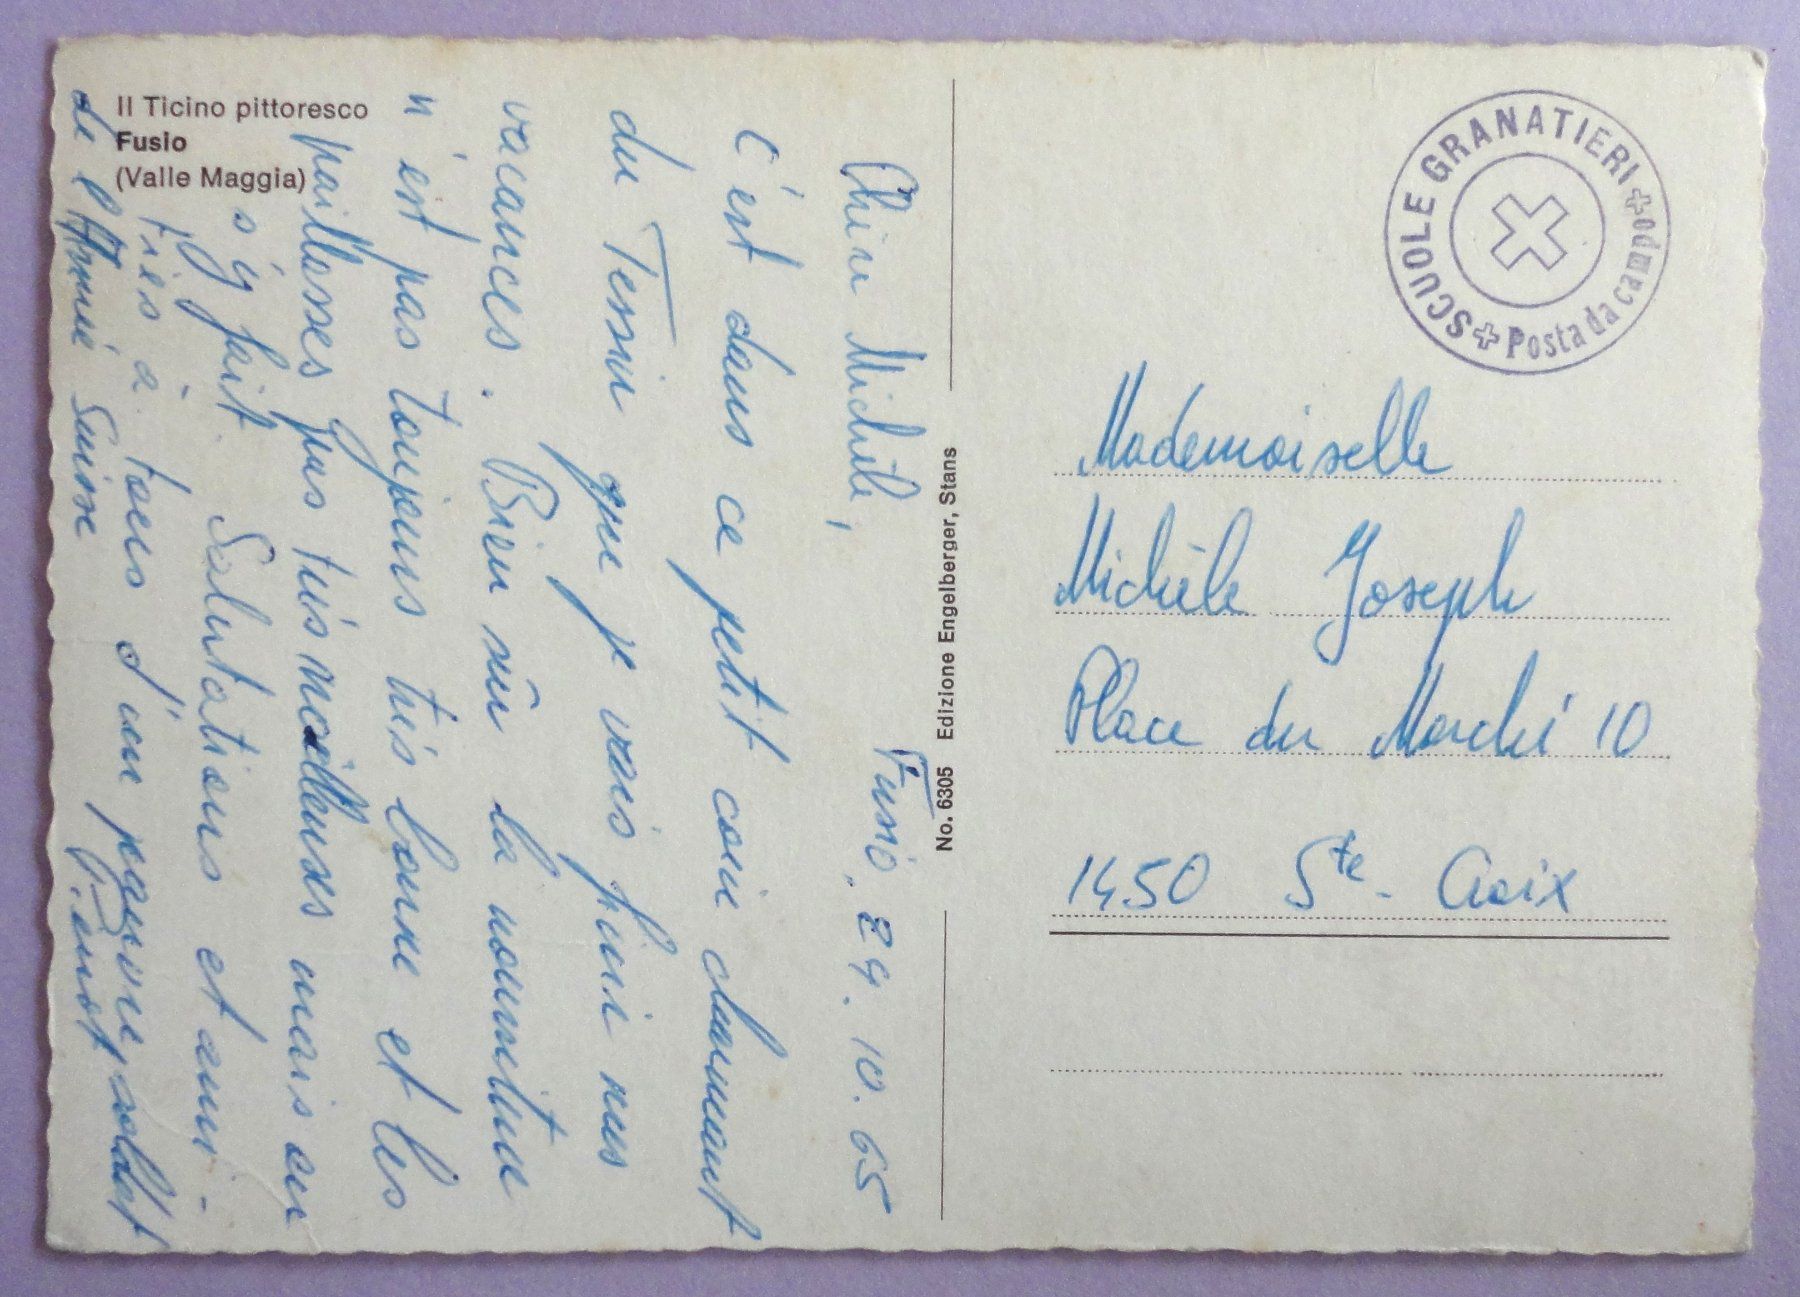 Il Ticino pittoresco
Fusio
(Valle Maggia)
Fusio, 29.10.65
Chère Michèle,
C'est dans ce petit coin charmant
du Tessin que je vais finir mes
vacances. Bien sûr la nourriture
n'est pas toujours très bonne et les
paillasses pas très moelleuses mais on
s'y fait. Salutations et ami-
tiés à tous d'un pauvre soldat
de l'Armée Suisse
No. 6305 Edizione Engelberger, Stans
SCUOLE GRANATIERI
Posta da campo
Mademoiselle
Michèle Joseph
Place du Marché 10
1450 Ste-Croix